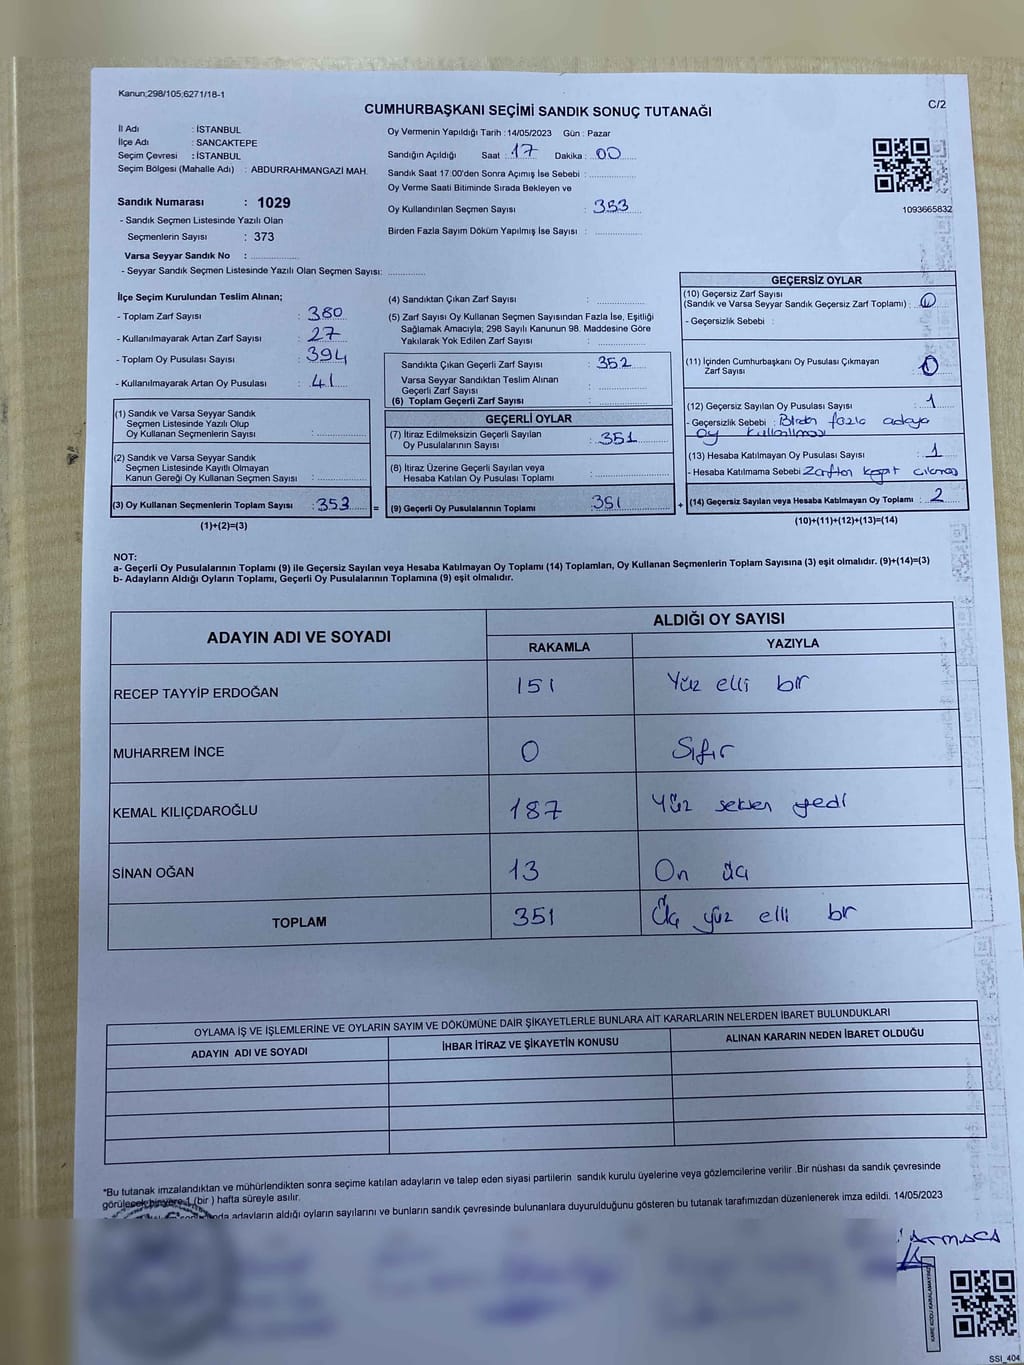 Kanun;298/105;6271/18-1
CUMHURBAŞKANI SEÇİMİ SANDIK SONUÇ TUTANAĞI
C/2
İl Adı : İSTANBUL
İlçe Adı : SANCAKTEPE
Seçim Çevresi : İSTANBUL
Seçim Bölgesi (Mahalle Adı) : ABDURRAHMANGAZİ MAH.
Sandık Numarası : 1029
- Sandık Seçmen Listesinde Yazılı Olan
Seçmenlerin Sayısı : 373
Varsa Seyyar Sandık No :
- Seyyar Sandık Seçmen Listesinde Yazılı Olan Seçmen Sayısı:
Oy Vermenin Yapıldığı Tarih : 14/05/2023 Gün : Pazar
Sandığın Açıldığı Saat : 17 Dakika : 00
Sandık Saat 17:00'den Sonra Açımış İse Sebebi :
Oy Verme Saati Bitiminde Sırada Bekleyen ve
Oy Kullandırılan Seçmen Sayısı : 353
Birden Fazla Sayım Döküm Yapılmış İse Sayısı :
1093665832
İlçe Seçim Kurulundan Teslim Alınan;
- Toplam Zarf Sayısı : 380
- Kullanılmayarak Artan Zarf Sayısı : 27
- Toplam Oy Pusulası Sayısı : 394
- Kullanılmayarak Artan Oy Pusulası : 41
(1) Sandık ve Varsa Seyyar Sandık
Seçmen Listesinde Yazılı Olup
Oy Kullanan Seçmenlerin Sayısı :
(2) Sandık ve Varsa Seyyar Sandık
Seçmen Listesinde Kayıtlı Olmayan
Kanun Gereği Oy Kullanan Seçmen Sayısı :
(3) Oy Kullanan Seçmenlerin Toplam Sayısı : 353 =
(1)+(2)=(3)
(4) Sandıktan Çıkan Zarf Sayısı :
(5) Zarf Sayısı Oy Kullanan Seçmen Sayısından Fazla İse, Eşitliği
Sağlamak Amacıyla; 298 Sayılı Kanunun 98. Maddesine Göre
Yakılarak Yok Edilen Zarf Sayısı :
Sandıkta Çıkan Geçerli Zarf Sayısı : 352
Varsa Seyyar Sandıktan Teslim Alınan
Geçerli Zarf Sayısı :
(6) Toplam Geçerli Zarf Sayısı :
GEÇERLİ OYLAR
(7) İtiraz Edilmeksizin Geçerli Sayılan
Oy Pusulalarının Sayısı : 351
(8) İtiraz Üzerine Geçerli Sayılan veya
Hesaba Katılan Oy Pusulası Toplamı :
(9) Geçerli Oy Pusulalarının Toplamı : 351 +
GEÇERSİZ OYLAR
(10) Geçersiz Zarf Sayısı
(Sandık ve Varsa Seyyar Sandık Geçersiz Zarf Toplamı) : 0
- Geçersizlik Sebebi :
(11) İçinden Cumhurbaşkanı Oy Pusulası Çıkmayan
Zarf Sayısı : 0
(12) Geçersiz Sayılan Oy Pusulası Sayısı : 1
- Geçersizlik Sebebi : Birden fazla adaya
oy kullanılması
(13) Hesaba Katılmayan Oy Pusulası Sayısı : 1
- Hesaba Katılmama Sebebi : Zarftan kağıt çıkması
(14) Geçersiz Sayılan veya Hesaba Katılmayan Oy Toplamı : 2
(10)+(11)+(12)+(13)=(14)
NOT:
a- Geçerli Oy Pusulalarının Toplamı (9) ile Geçersiz Sayılan veya Hesaba Katılmayan Oy Toplamı (14) Toplamları, Oy Kullanan Seçmenlerin Toplam Sayısına (3) eşit olmalıdır. (9)+(14)=(3)
b- Adayların Aldığı Oyların Toplamı, Geçerli Oy Pusulalarının Toplamına (9) eşit olmalıdır.
ADAYIN ADI VE SOYADI
ALDIĞI OY SAYISI
RAKAMLA YAZIYLA
RECEP TAYYİP ERDOĞAN 151 Yüz elli bir
MUHARREM İNCE 0 Sıfır
KEMAL KILIÇDAROĞLU 187 Yüz seksen yedi
SİNAN OĞAN 13 On üç
TOPLAM 351 Üç yüz elli bir
OYLAMA İŞ VE İŞLEMLERİNE VE OYLARIN SAYIM VE DÖKÜMÜNE DAİR ŞİKAYETLERLE BUNLARA AİT KARARLARIN NELERDEN İBARET BULUNDUKLARI
ADAYIN ADI VE SOYADI İHBAR İTİRAZ VE ŞİKAYETİN KONUSU ALINAN KARARIN NEDEN İBARET OLDUĞU
*Bu tutanak imzalandıktan ve mühürlendikten sonra seçime katılan adayların ve talep eden siyasi partilerin sandık kurulu üyelerine veya gözlemcilerine verilir .Bir nüshası da sandık çevresinde
görülecek bir yere 1 (bir ) hafta süreyle asılır.
adayların aldığı oyların sayılarını ve bunların sandık çevresinde bulunanlara duyurulduğunu gösteren bu tutanak tarafımızdan düzenlenerek imza edildi. 14/05/2023
KARE KODU KARALAMAYINIZ
SSI_404